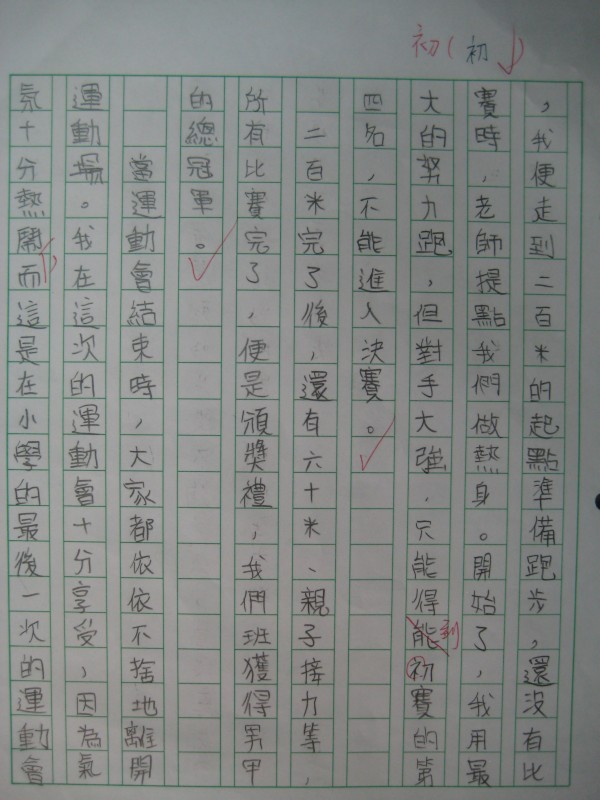 初(初)
，我便走到二百米的起點準備跑步，還沒有比
賽時，老師提點我們做熱身。開始了，我用最
大的努力跑，但對手大強，只能得能到初賽的第
四名，不能進入決賽。
二百米完了後，還有六十米、親子接力等，
所有比賽完了，便是頒獎禮，我們班獲得男甲
的總冠軍。
當運動會結束時，大家都依依不捨地離開
運動場。我在這次的運動會十分享受，因為氣
氛十分熱鬧，而這是在小學的最後一次的運動會